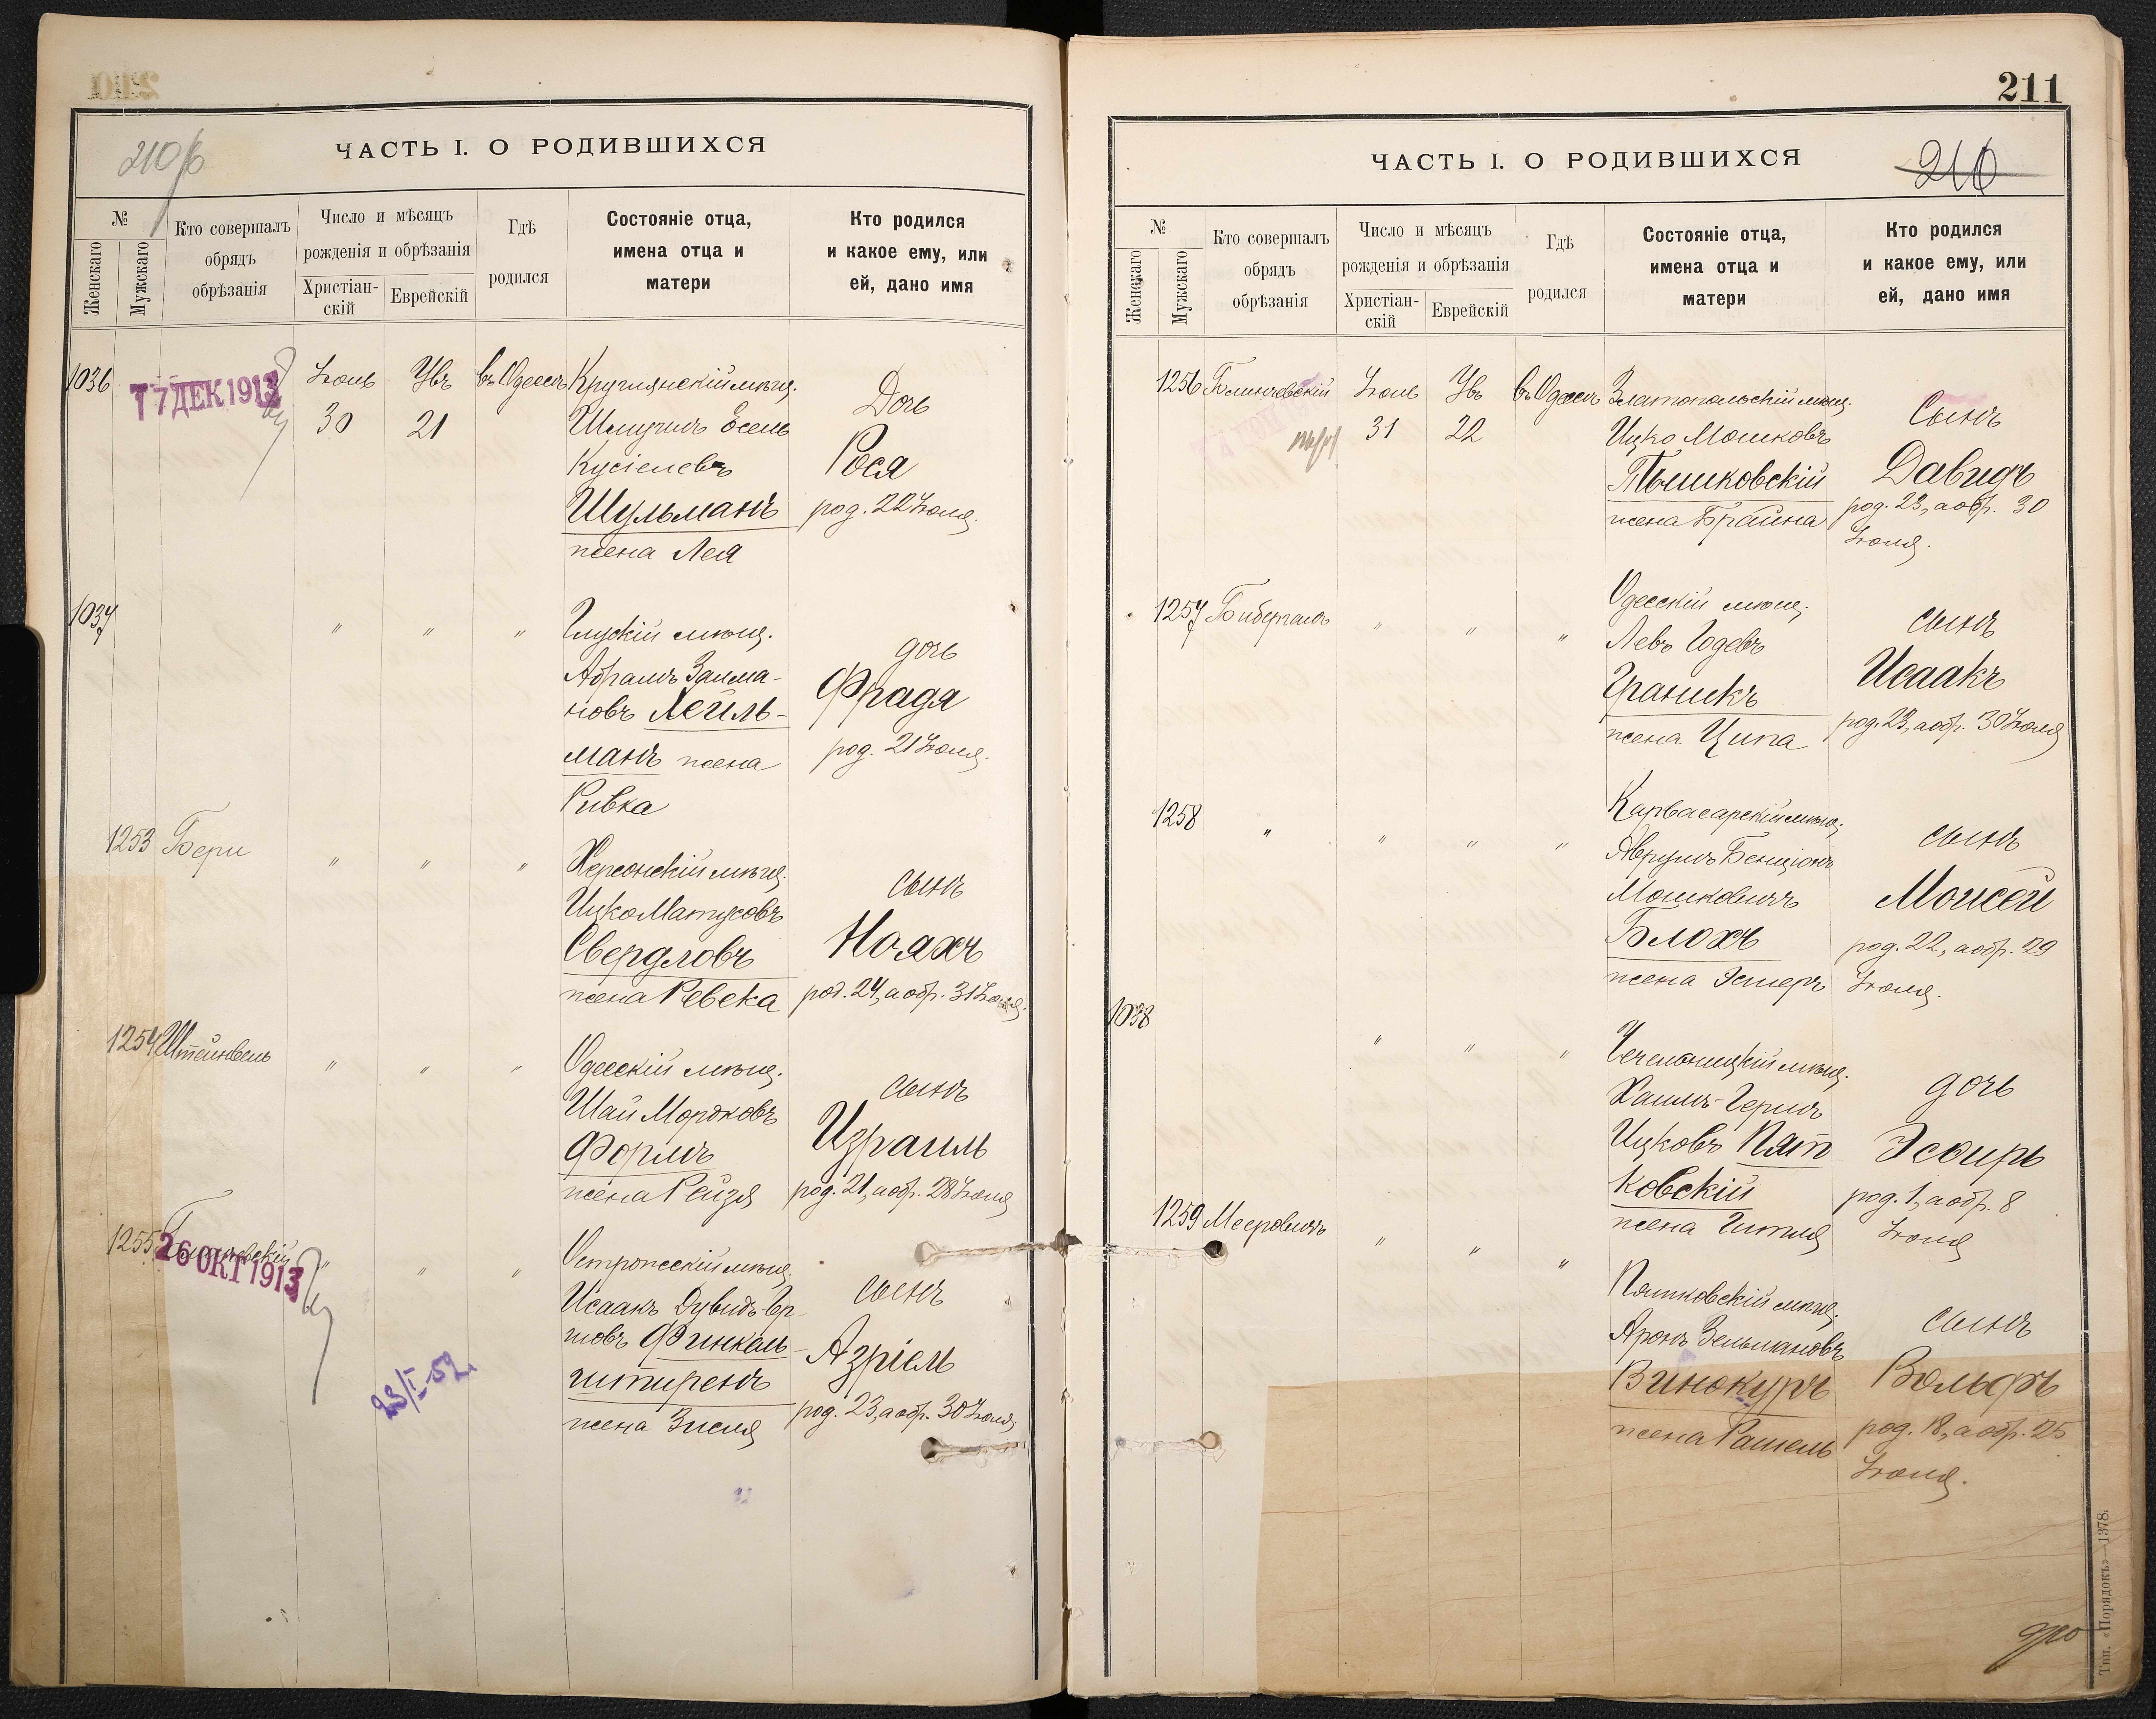 210 б
ЧАСТЬ I. О РОДИВШИХСЯ
№
Женскаго
Мужскаго
Кто совершалъ
обрядъ
обрѣзанія
Число и мѣсяцъ
рожденія и обрѣзанія
Христіан-
скій
Еврейскій
Гдѣ
родился
Состояніе отца,
имена отца и
матери
Кто родился
и какое ему, или
ей, дано имя
1036
17 ДЕК 1913
Іюль
30
Увъ
21
въ Одессѣ
Круглянскій мѣщ.
Шмуилъ Іосель
Кусіелевъ
Шульманъ
жена Лея
Дочь
Рося
род. 22 Іюля.
1037
"
"
"
Глускій мѣщ.
Абрамъ Залма-
новъ Лейль-
манъ жена
Ривка
дочь
Фрадя
род. 21 Іюля.
1253
Бери
"
"
"
Херсонскій мѣщ.
Ицко Матусовъ
Свердловъ
жена Ревека
сынъ
Ноахъ
род. 24, а обр. 31 Іюля.
1254
Штейнвель
"
"
"
Одесскій мѣщ.
Шай Мордковъ
Формъ
жена Рейзя
сынъ
Израиль
род. 21, а обр. 28 Іюля
1255
26 ОКТ 1913
"
"
"
Исаакъ Дувидъ
Финкель-
штиренъ
жена Зися
сынъ
Азріель
род. 23, а обр. 30 Іюля.
23/I-52.
211
ЧАСТЬ I. О РОДИВШИХСЯ
210
№
Женскаго
Мужскаго
Кто совершалъ
обрядъ
обрѣзанія
Число и мѣсяцъ
рожденія и обрѣзанія
Христіан-
скій
Еврейскій
Гдѣ
родился
Состояніе отца,
имена отца и
матери
Кто родился
и какое ему, или
ей, дано имя
1256
Блинчевскій
Іюль
31
Увъ
22
въ Одессѣ
Златопольскій мѣщ.
Ицко Мошковъ
Тышковскій
жена Брайна
Сынъ
Давидъ
род. 23, а обр. 30
Іюля.
1257
Бибергалъ
"
"
"
Одесскій мѣщ.
Левъ Годевъ
Граникъ
жена Ципа
сынъ
Исаакъ
род. 23, а обр. 30 Іюля
1258
"
"
"
"
Карвасарскій мѣщ.
Аврумъ Бенціонъ
Мошковичъ
Блохъ
жена Эстеръ
сынъ
Моисей
род. 22, а обр. 29
Іюля.
1038
"
"
"
Чечельницкій мѣщ.
Хаимъ-Гершъ
Ицковъ Пят-
ковскій
жена Гитля
дочь
Эсѳирь
род. 1, а обр. 8
Іюля
1259
Мееровичъ
"
"
"
Пятковскій мѣщ.
Аронъ Зельмановъ
Винокуръ
жена Рашель
сынъ
Вольфъ
род. 18, а обр. 25
Іюля.
Тип. «Порядокъ»—1378.